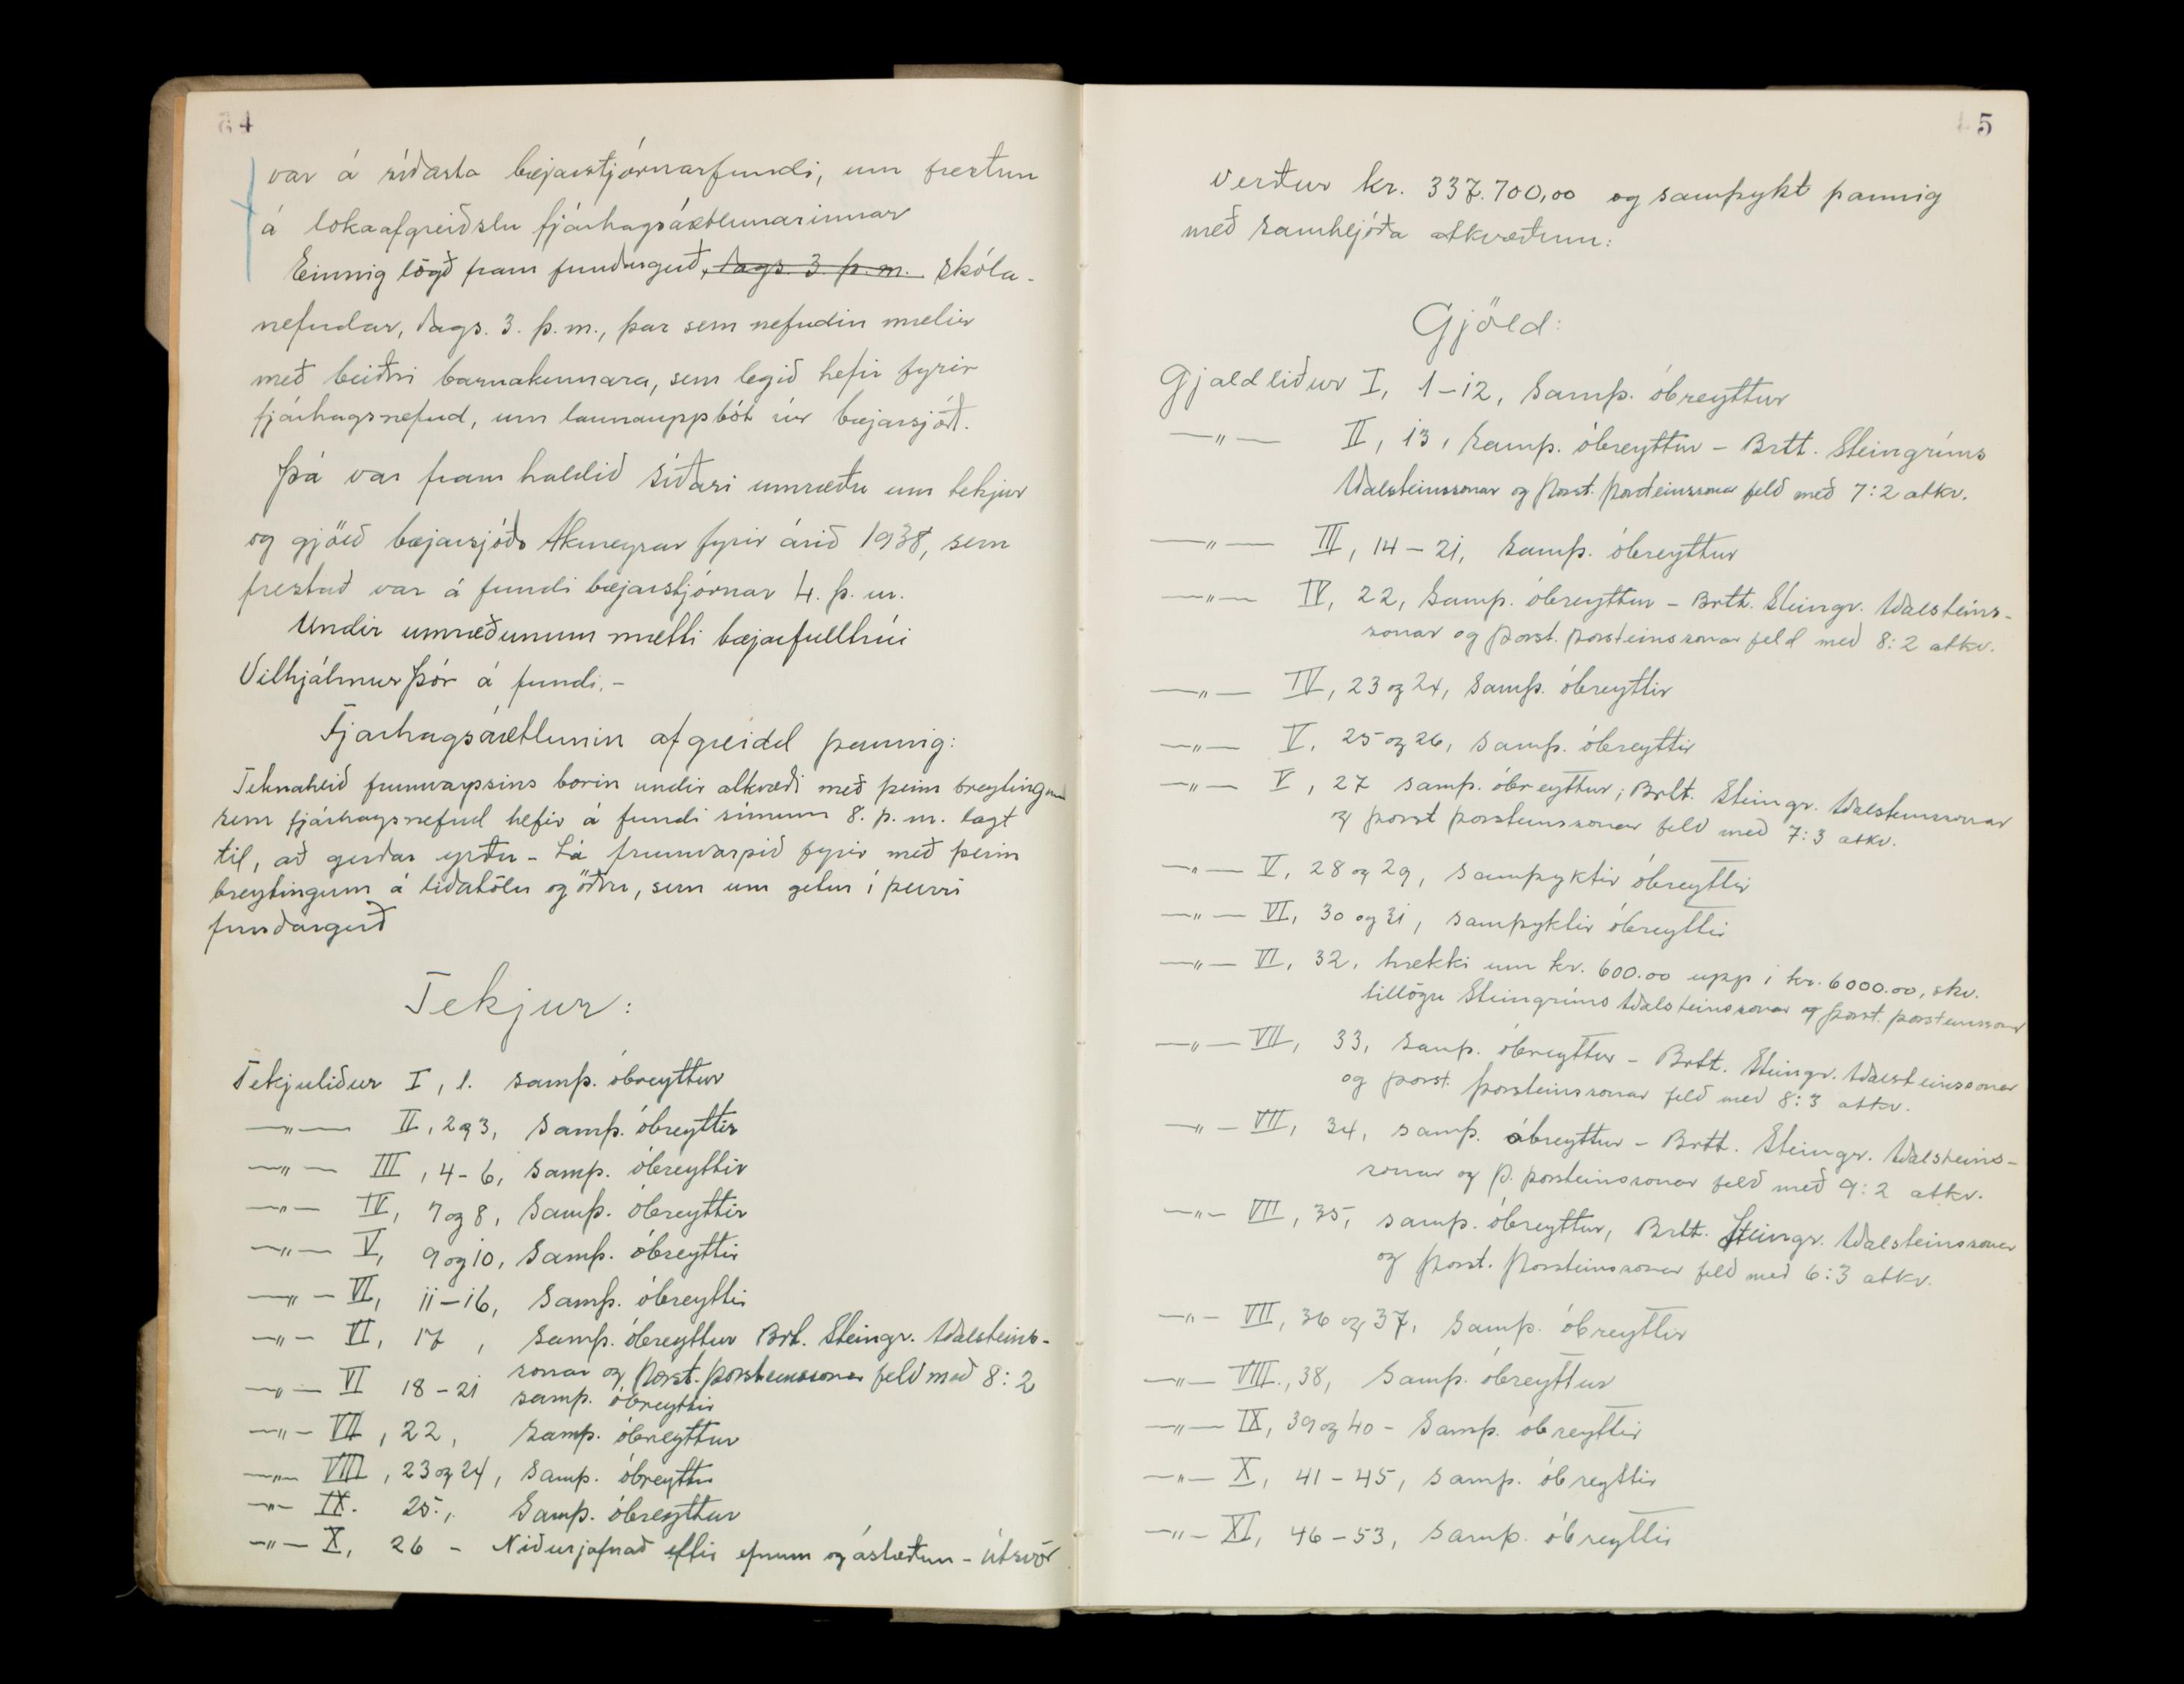 4
var á síðasta bæjarstjórnarfundi, um frestun
á lokaafgreiðslu fjárhagsáætlunarinnar
Einnig lögð fram fundargerð, dags. 3. þ.m. skóla-
nefndar, dags. 3. þ.m., þar sem nefndin mælir
með beiðni barnakennara, sem legið hefir fyrir
fjárhagsnefnd, um launauppbót úr bæjarsjóði.
Þá var fram haldið síðari umræðu um tekjur
og gjöld bæjarsjóðs Akureyrar fyrir árið 1938, sem
frestað var á fundi bæjarstjórnar 4. þ.m.
Undir umræðunum mætti bæjarfulltrúi
Vilhjálmur Þór á fundi.-
Fjárhagsáætlunin afgreidd þannig:
Teknahlið frumvarpsins borin undir atkvæði með þeim breytingum
sem fjárhagsnefnd hefir á fundi sínum 8. þ.m. lagt
til, að gerðar yrðu - Lá frumvarpið fyrir með þeim
breytingum á liðatölu og öðru, sem um getur í þeirri
fundargerð
Tekjur:
Tekjuliður I, 1. samþ. óbreyttur
—„— II, 2 og 3, Samþ. óbreyttir
—„— III, 4-6, Samþ. óbreyttir
—„— IV, 7 og 8, Samþ. óbreyttir
—„— V, 9 og 10, Samþ. óbreyttir
—„— VI, 11-16, Samþ. óbreyttir
—„— VI, 17, Samþ. óbreyttur Brt. Steingr. Aðalsteins-
sonar og Þorst. Þorsteinssonar feld með 8:2
—„— VI 18-21 samþ. óbreyttir
—„— VII, 22, Samþ. óbreyttur
—„— VIII, 23 og 24, Samþ. óbreyttir
—„— IX. 25., Samþ. óbreyttur
—„— X, 26 - Niðurjafnað eftir efnum og ástæðum - útsvör
5
verður kr. 337.700,00 og samþykt þannig
með samhljóða atkvæðum:
Gjöld:
Gjaldliður I, 1-12, Samþ. óbreyttur
—„— II, 13, Samþ. óbreyttur - Brtt. Steingríms
Aðalsteinssonar og Þorst. Þorsteinssonar feld með 7:2 atkv.
—„— III, 14-21, Samþ. óbreyttur
—„— IV, 22, Samþ. óbreyttur - Brtt. Steingr. Aðalsteins-
sonar og Þorst. Þorsteinssonar feld með 8:2 atkv.
—„— IV, 23 og 24, Samþ. óbreyttir
—„— V, 25 og 26, Samþ. óbreyttir
—„— V, 27 samþ. óbreyttur; Brtt. Steingr. Aðalsteinssonar
og Þorst Þorsteinssonar feld með 7:3 atkv.
—„— V, 28 og 29, Samþyktir óbreyttir
—„— VI, 30 og 31, samþyktir óbreyttir
—„— VI, 32, hækki um kr. 600.00 upp í kr. 6000.00, skv.
tillögu Steingríms Aðalsteinssonar og Þorst. Þorsteinssonar
—„— VII, 33, Samþ. óbreyttur - Brtt. Steingr. Aðalsteinssonar
og Þorst. Þorsteinssonar feld með 8:3 atkv.
—„— VII, 34, samþ. óbreyttur - Brtt. Steingr. Aðalsteins-
sonar og Þ. Þorsteinssonar feld með 9:2 atkv.
—„— VII, 35, samþ. óbreyttur, Brtt. Steingr. Aðalsteinssonar
og Þorst. Þorsteinssonar feld með 6:3 atkv.
—„— VII, 36 og 37, Samþ. óbreyttir
—„— VIII., 38, Samþ. óbreyttur
—„— IX, 39 og 40 - Samþ. óbreyttir
—„— X, 41-45, samþ. óbreyttir
—„— XI, 46-53, Samþ. óbreyttir